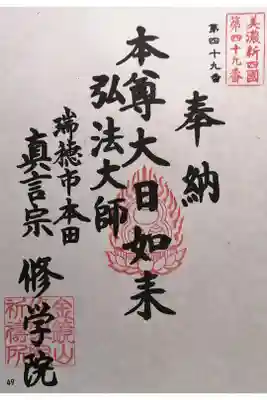 美濃新四國
第四十九番
第四十九番
奉納
本尊大日如来
弘法大師
瑞穗市本田
眞言宗 修学院
49